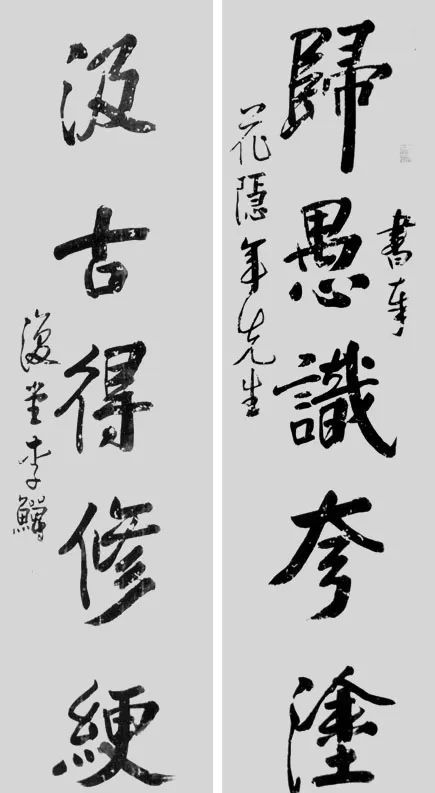 書奉
歸愚識夸塗
花隱年先生
汲古得修綆
復堂李鱓